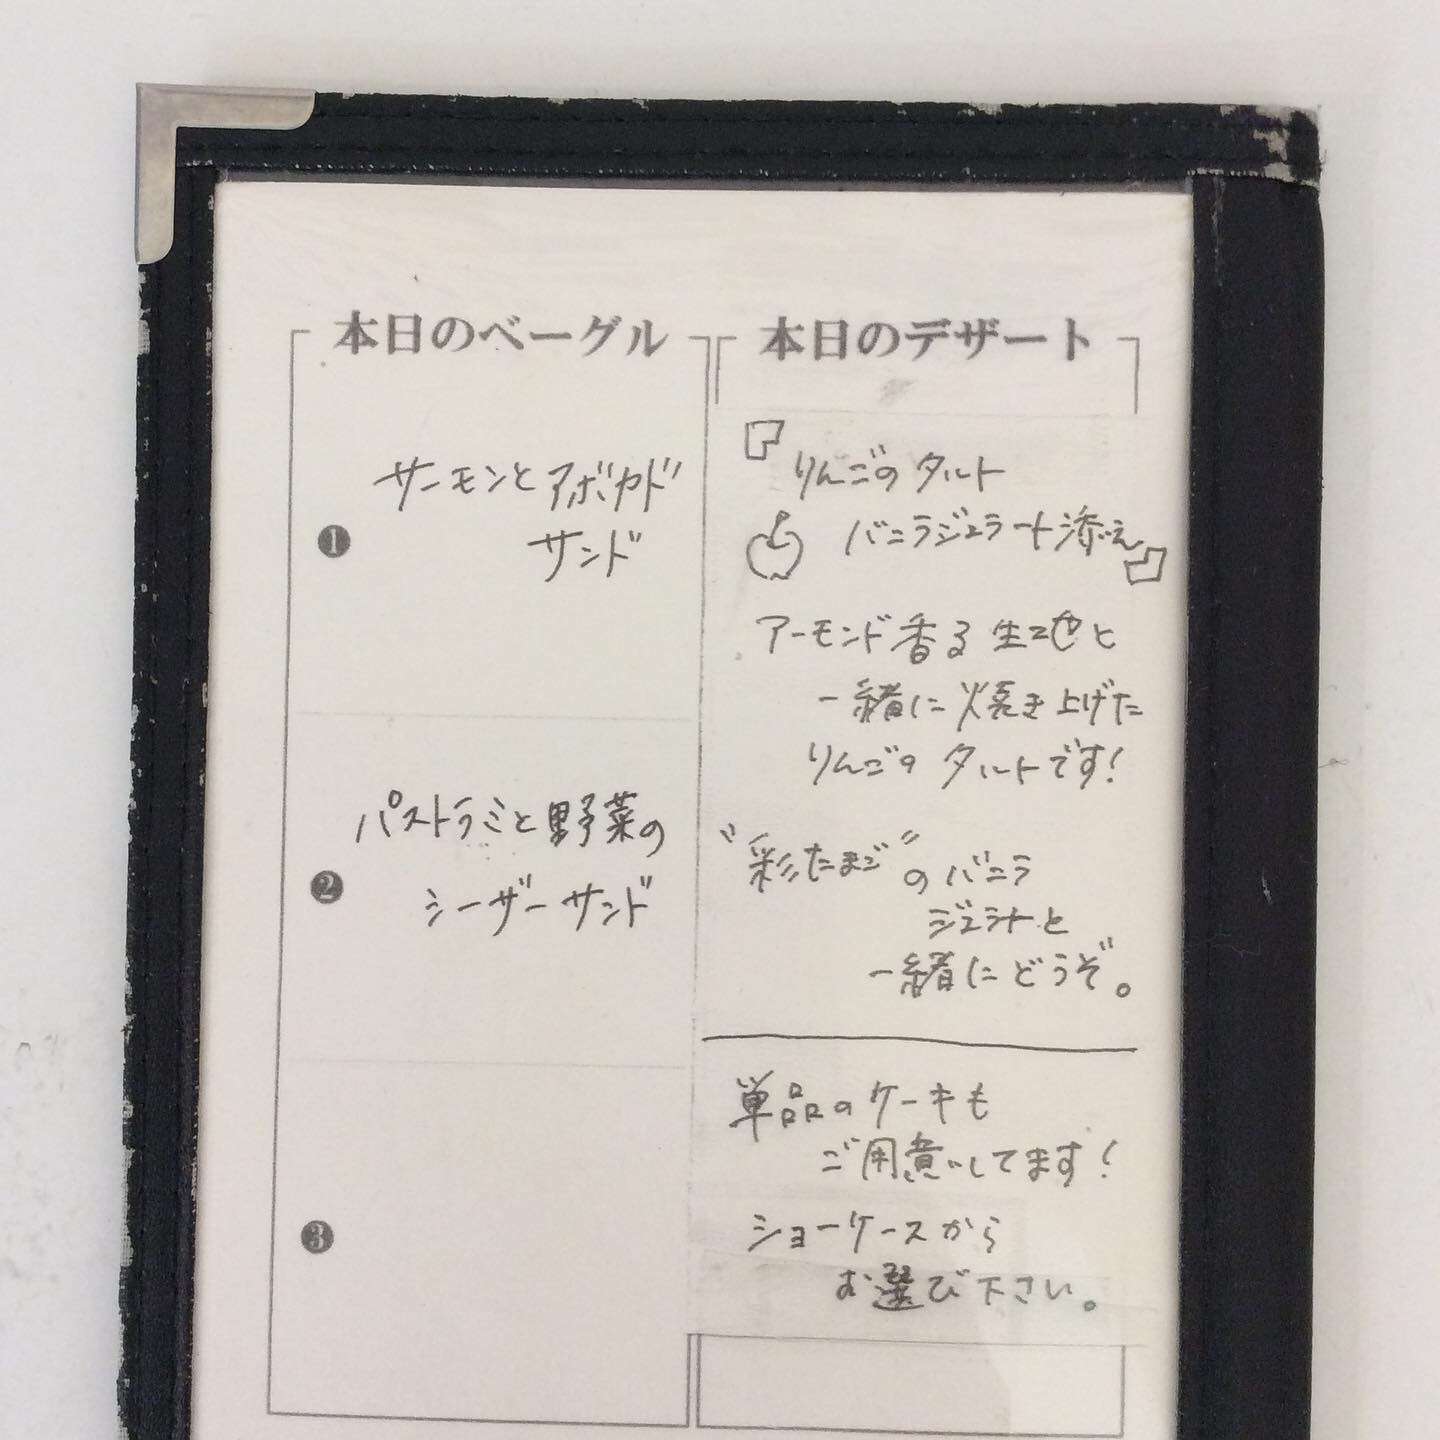 本日のベーグル
❶
サーモンとアボカド
サンド
❷
パストラミと野菜の
シーザーサンド
❸
本日のデザート
『りんごのタルト
バニラジェラート添え』
アーモンド香る生地と
一緒に焼き上げた
りんごのタルトです!
"彩たまご"のバニラ
ジェラートと
一緒にどうぞ。
単品のケーキも
ご用意してます!
ショーケースから
お選び下さい。